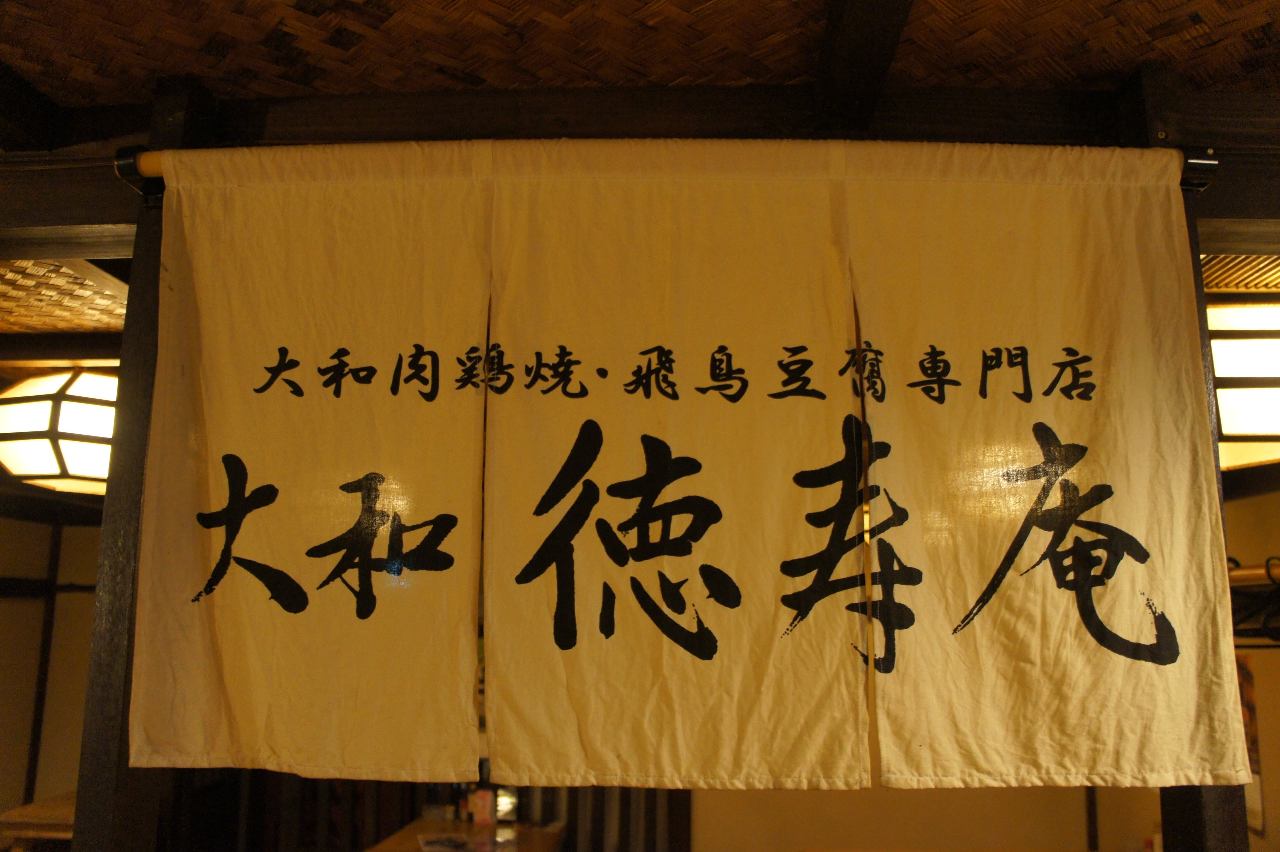 大和肉鶏焼・飛鳥豆腐専門店
大和 徳寿庵